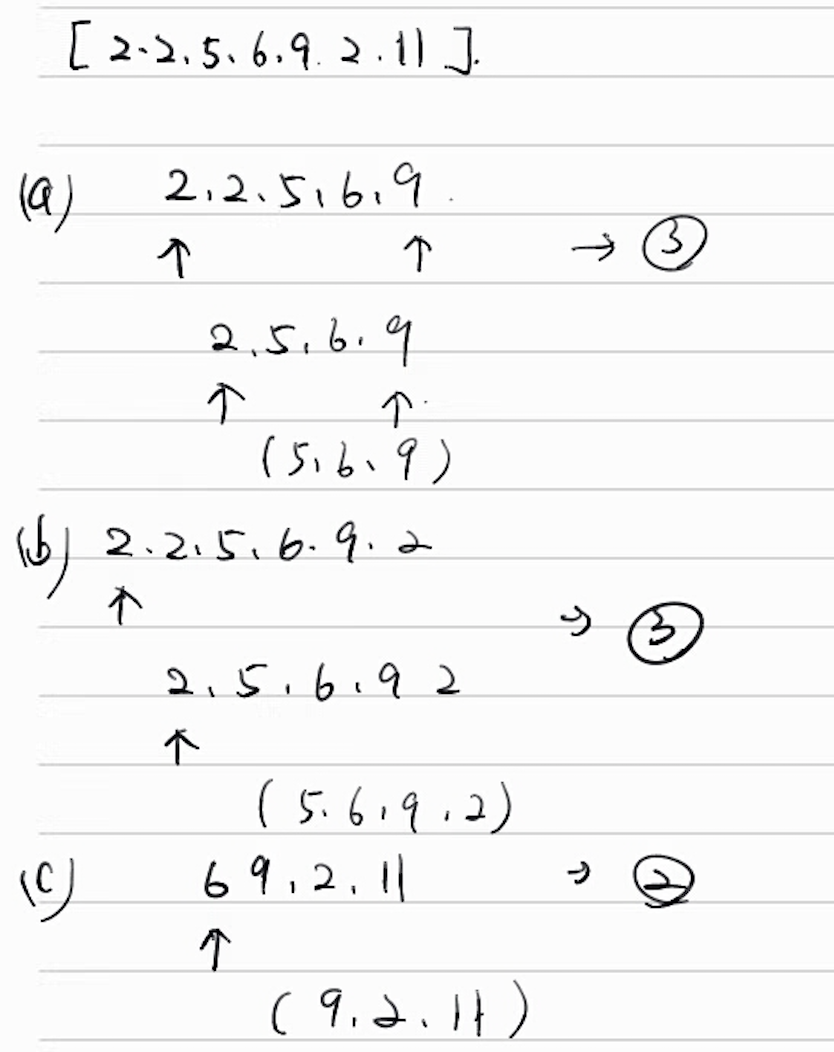 [ 2.2.5.6.9.2.11 ].
(a) 2.2.5.6.9.
↑ ↑ → ③
2.5.6.9
↑ ↑
(5.6.9)
(b) 2.2.5.6.9.2
↑ → ③
2.5.6.9 2
↑
(5.6.9.2)
(c) 6 9.2.11 → ②
↑
(9.2.11)